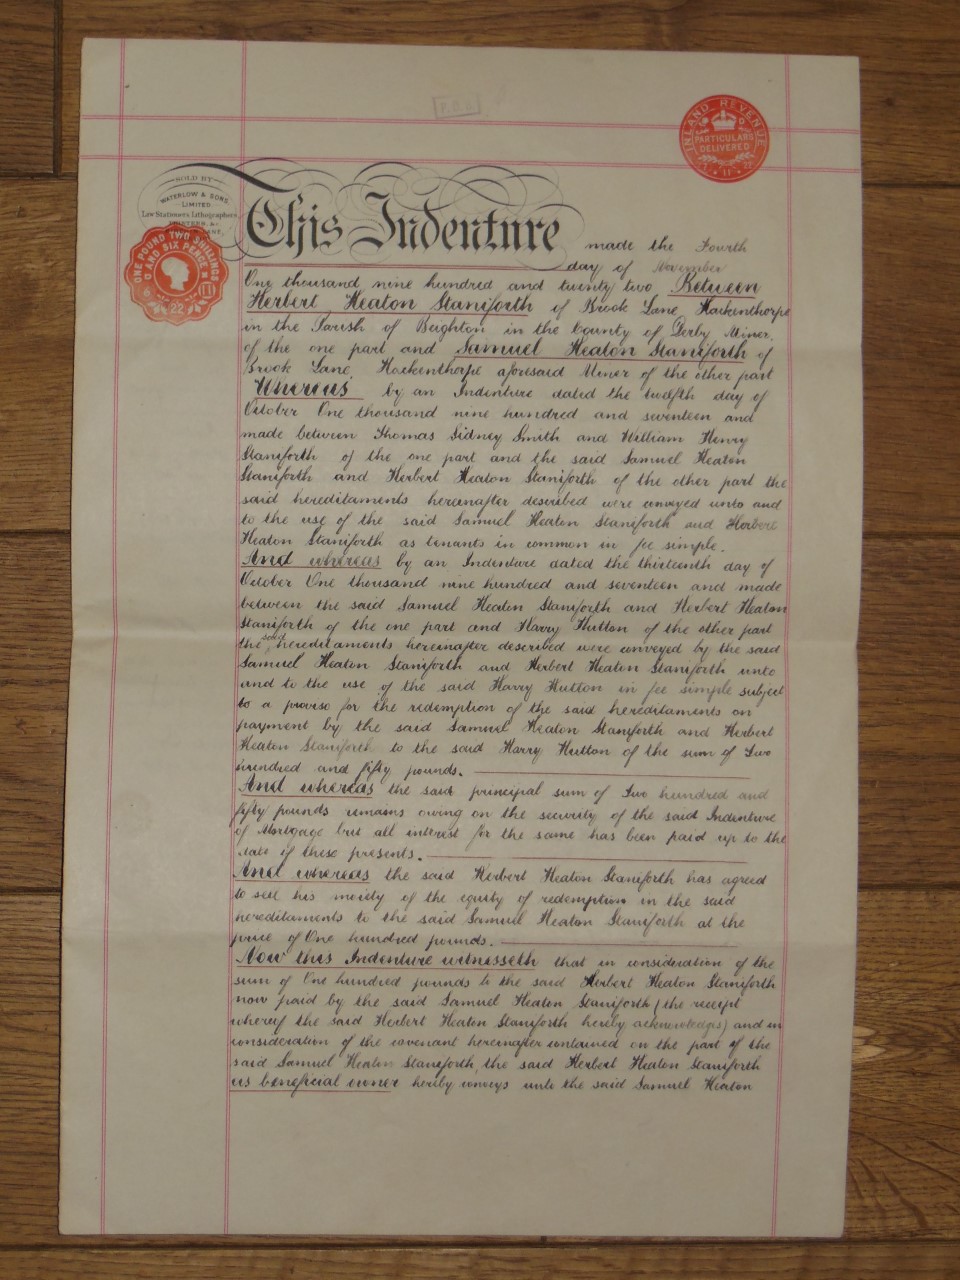 INLAND REVENUE
PARTICULARS
DELIVERED
11
SOLD BY
WATERLOW & SONS
LIMITED
Law Stationers, Lithographers
ONE POUND TWO SHILLINGS
AND SIX PENCE
22
This Indenture made the Fourth
day of November
One thousand nine hundred and twenty two Between
Herbert Heaton Staniforth of Brook Lane Hackenthorpe
in the Parish of Beighton in the County of Derby Miner
of the one part and Samuel Heaton Staniforth of
Brook Lane Hackenthorpe aforesaid Miner of the other part
Whereas by an Indenture dated the twelfth day of
October One thousand nine hundred and seventeen and
made between Thomas Sidney Smith and William Henry
Staniforth of the one part and the said Samuel Heaton
Staniforth and Herbert Heaton Staniforth of the other part the
said hereditaments hereinafter described were conveyed unto and
to the use of the said Samuel Heaton Staniforth and Herbert
Heaton Staniforth as tenants in common in fee simple.
And whereas by an Indenture dated the thirteenth day of
October One thousand nine hundred and seventeen and made
between the said Samuel Heaton Staniforth and Herbert Heaton
Staniforth of the one part and Harry Hutton of the other part
the said hereditaments hereinafter described were conveyed by the said
Samuel Heaton Staniforth and Herbert Heaton Staniforth unto
and to the use of the said Harry Hutton in fee simple subject
to a proviso for the redemption of the said hereditaments on
payment by the said Samuel Heaton Staniforth and Herbert
Heaton Staniforth to the said Harry Hutton of the sum of Two
hundred and fifty pounds.
And whereas the said principal sum of Two hundred and
fifty pounds remains owing on the security of the said Indenture
of Mortgage but all interest for the same has been paid up to the
date of these presents.
And whereas the said Herbert Heaton Staniforth has agreed
to sell his moiety of the equity of redemption in the said
hereditaments to the said Samuel Heaton Staniforth at the
price of One hundred pounds.
Now this Indenture witnesseth that in consideration of the
sum of One hundred pounds to the said Herbert Heaton Staniforth
now paid by the said Samuel Heaton Staniforth (the receipt
whereof the said Herbert Heaton Staniforth hereby acknowledges) and in
consideration of the covenant hereinafter contained on the part of the
said Samuel Heaton Staniforth, the said Herbert Heaton Staniforth
as beneficial owner hereby conveys unto the said Samuel Heaton